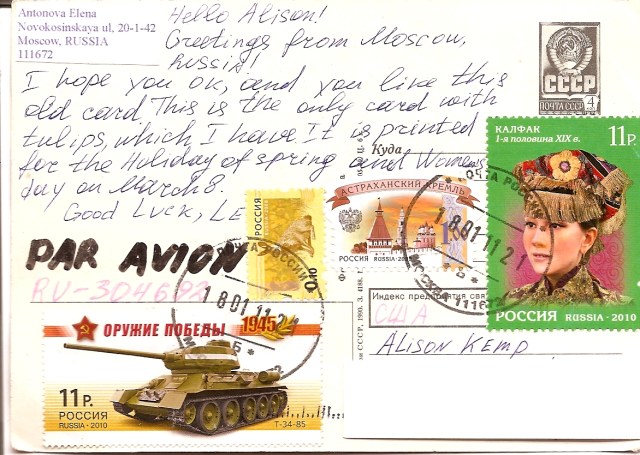 Antonova Elena
Novokosinskaya ul, 20-1-42
Moscow, RUSSIA
111672
Hello Alison!
Greetings from Moscow,
Russia!
I hope you ok, and you like this
old card. This is the only card with
tulips, which I have. It is printed
for the Holiday of spring and Womens
day on March 8.
Good Luck, LE
PAR AVION
RU-304692
СССР
ПОЧТА СССР
4
Куда
КАЛФАК
1-я половина XIX в.
11Р.
РОССИЯ RUSSIA · 2010
АСТРАХАНСКИЙ КРЕМЛЬ
РОССИЯ
РОССИЯ
0.10
18.01.11 21
МОСКВА
111672
18.01.11 21
Индекс предприятия связи
США
Alison Kemp
ОРУЖИЕ ПОБЕДЫ 1945
11Р.
РОССИЯ
RUSSIA · 2010
Т-34-85